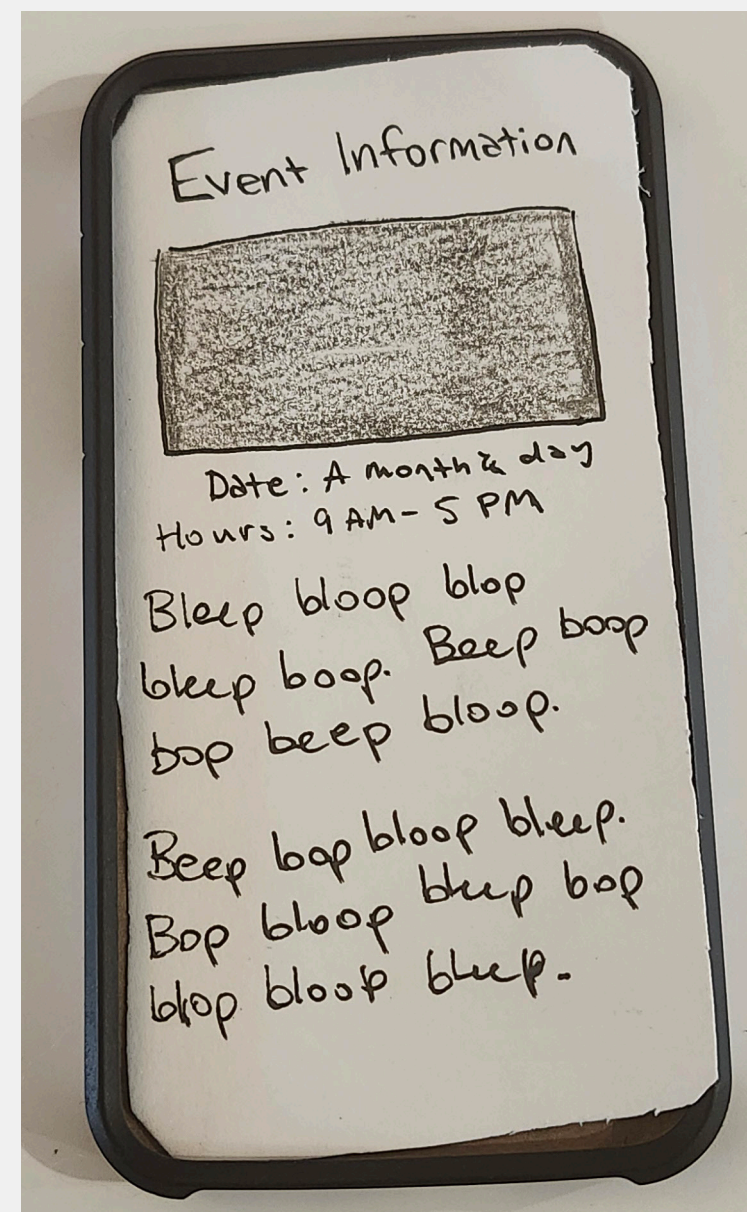 Event Information
Date: A month & day
Hours: 9 AM - 5 PM
Bleep bloop blop
bleep boop. Beep boop
bop beep bloop.
Beep bop bloop bleep.
Bop bloop bleep bop
blop bloop bleep.